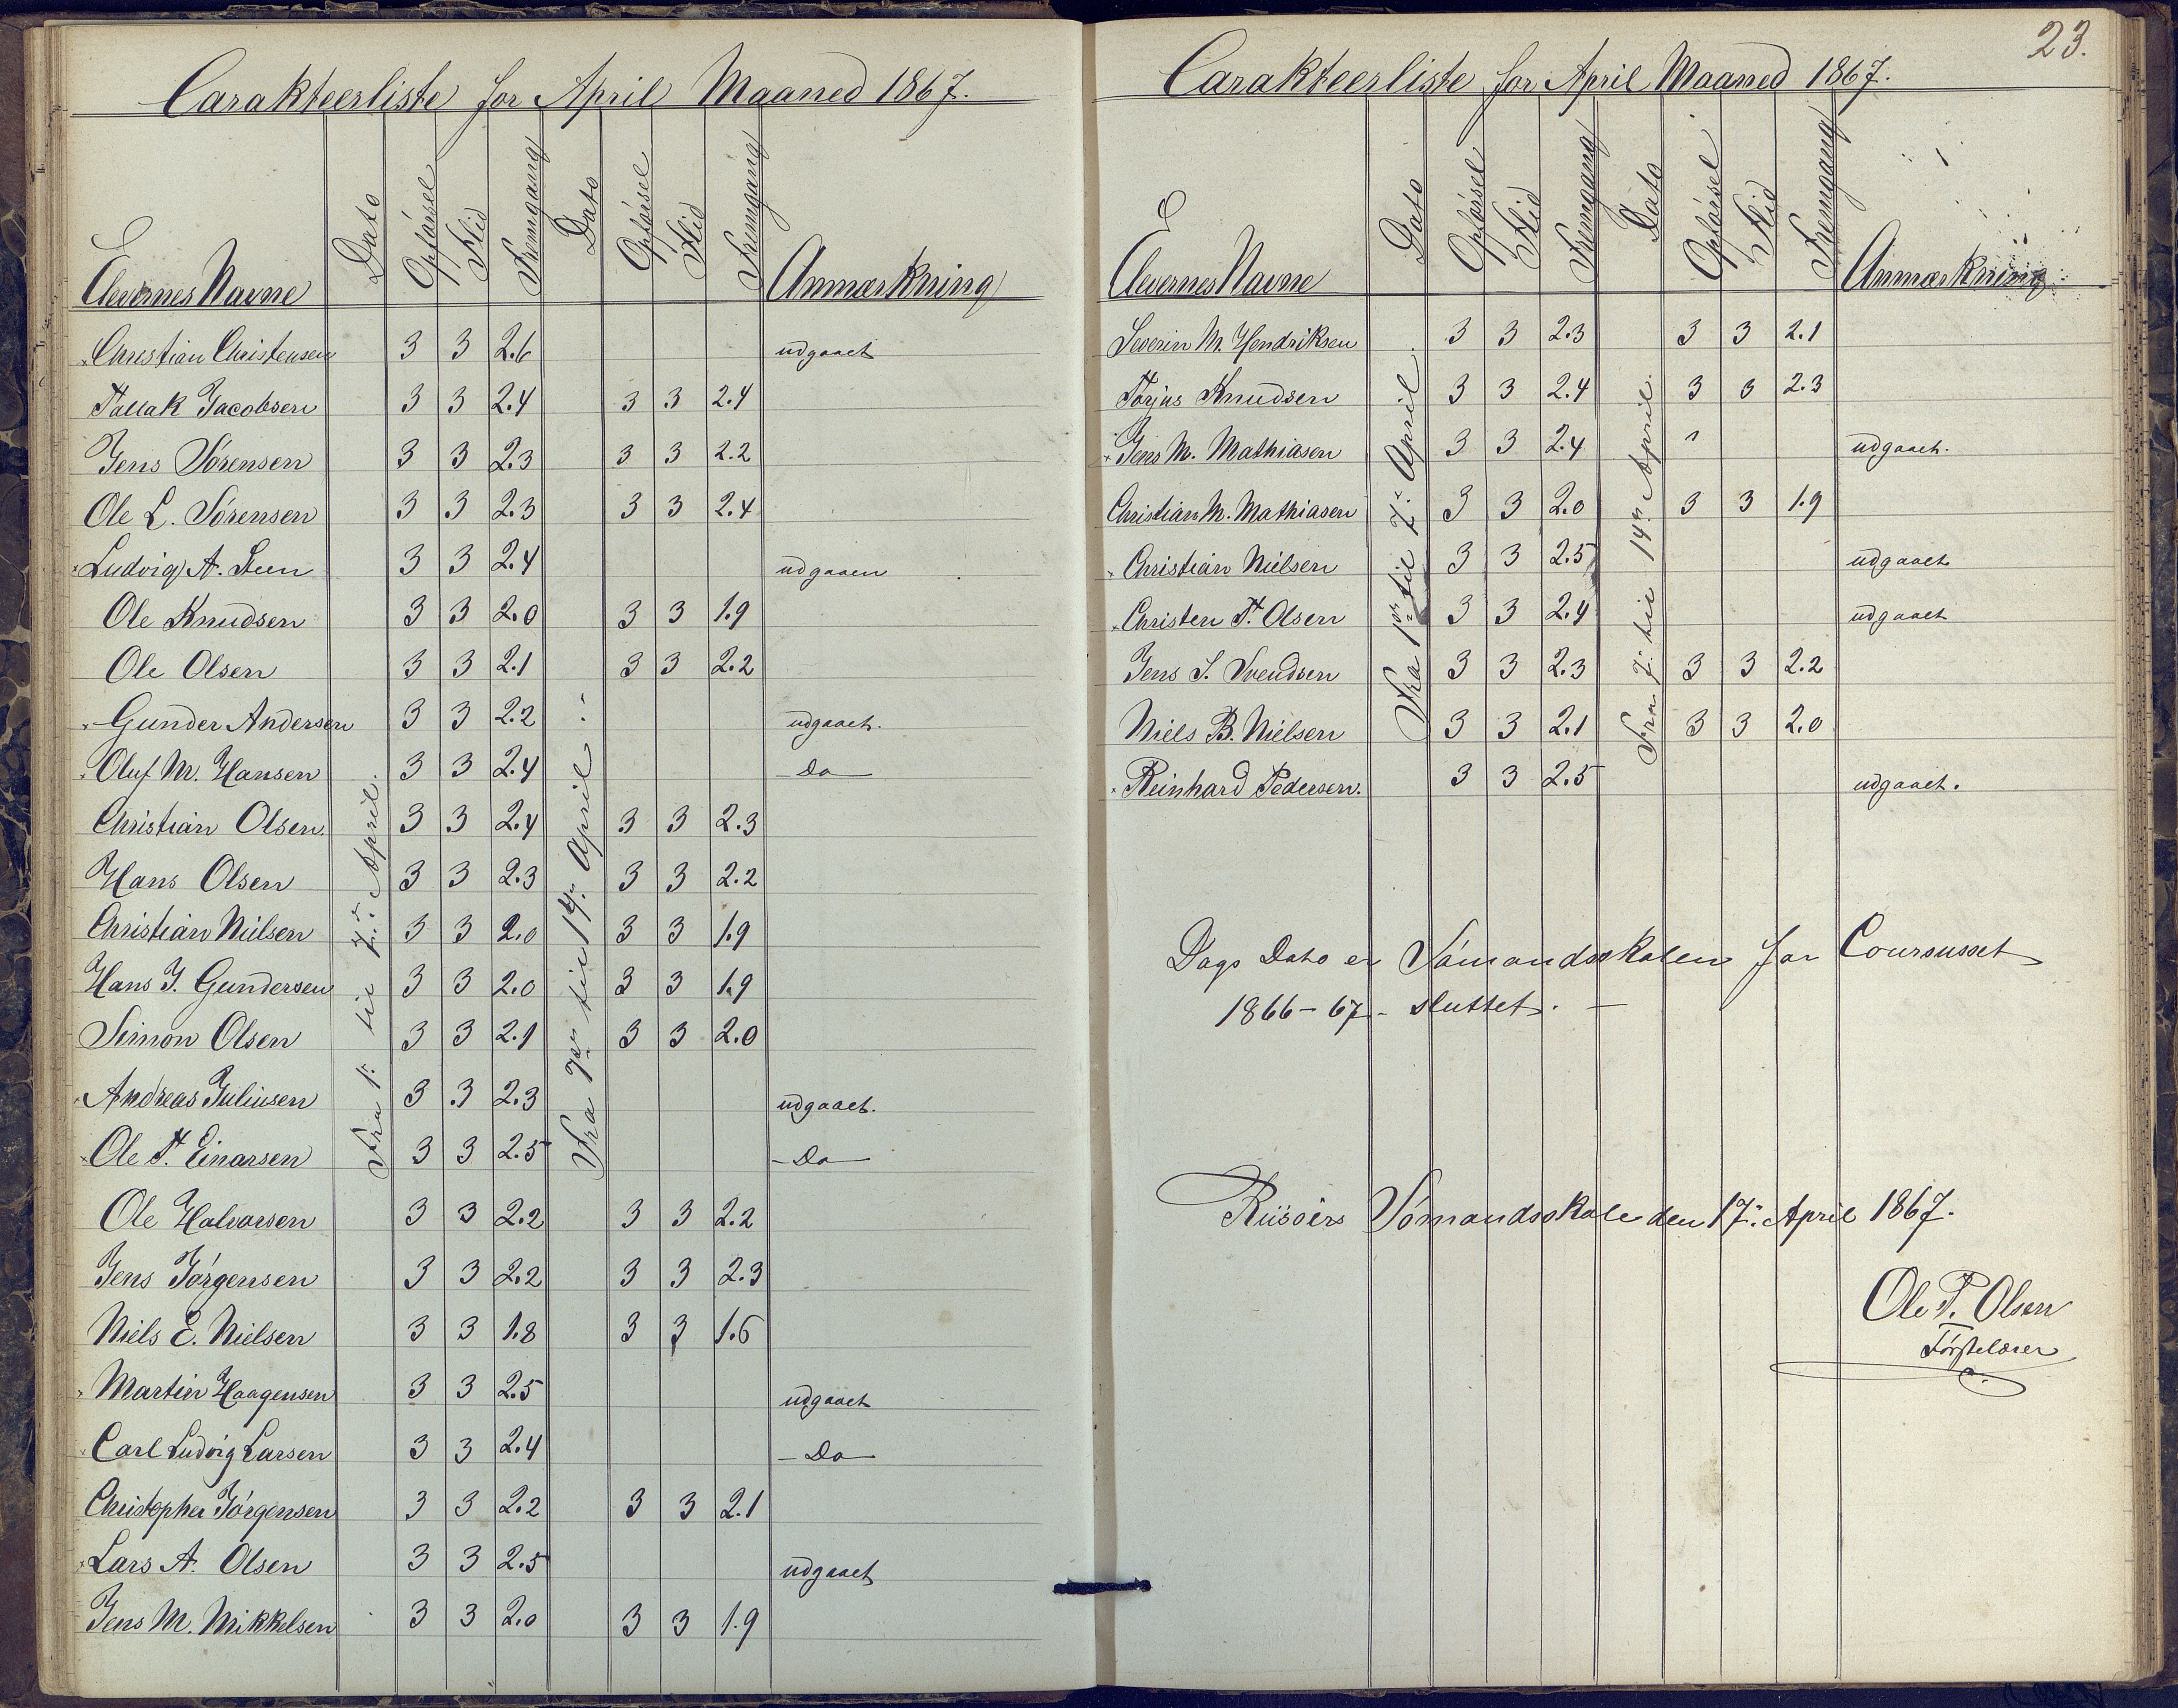 Carakteerliste for April Maaned 1867.
Elevernes Navne Dato Opførsel Flid Fremgang Dato Opførsel Flid Fremgang Anmærkning
Fra 1: til 7de April.
Fra 7de til 14de April.
Christian Christensen 3 3 2.6 udgaaet
Tallak Jacobsen 3 3 2.4 3 3 2.4
Jens Sørensen 3 3 2.3 3 3 2.2
Ole L. Sørensen 3 3 2.3 3 3 2.4
Ludvig A. Steen 3 3 2.4 udgaaen
Ole Knudsen 3 3 2.0 3 3 1.9
Ole Olsen 3 3 2.1 3 3 2.2
Gunder Andersen 3 3 2.2 udgaaet.
Oluf M. Hansen 3 3 2.4 - Do -
Christian Olsen 3 3 2.4 3 3 2.3
Hans Olsen 3 3 2.3 3 3 2.2
Christian Nielsen 3 3 2.0 3 3 1.9
Hans J. Gundersen 3 3 2.0 3 3 1.9
Simon Olsen 3 3 2.1 3 3 2.0
Andreas Juliusen 3 3 2.3 udgaaet.
Ole T. Einarsen 3 3 2.5 - Do -
Ole Halvorsen 3 3 2.2 3 3 2.2
Jens Jørgensen 3 3 2.2 3 3 2.3
Niels E. Nielsen 3 3 1.8 3 3 1.6
Martin Haagensen 3 3 2.5 udgaaet
Carl Ludvig Larsen 3 3 2.4 - Do -
Christopher Jørgensen 3 3 2.2 3 3 2.1
Lars A. Olsen 3 3 2.5 udgaaet
Jens M. Mikkelsen 3 3 2.0 3 3 1.9
23.
Carakteerliste for April Maaned 1867.
Elevernes Navne Dato Opførsel Flid Fremgang Dato Opførsel Flid Fremgang Anmærkning
Fra 1ste til 7: April.
Fra 7: til 14de April.
Severin M. Hendriksen 3 3 2.3 3 3 2.1
Torjus Knudsen 3 3 2.4 3 3 2.3
Jens M. Mathiasen 3 3 2.4 udgaaet.
Christian M. Mathiasen 3 3 2.0 3 3 1.9
Christian Nielsen 3 3 2.5 udgaaet
Christen T. Olsen 3 3 2.4 udgaaet
Jens S. Svendsen 3 3 2.3 3 3 2.2
Niels B. Nielsen 3 3 2.1 3 3 2.0
Reinhard Pedersen. 3 3 2.5 udgaaet.
Dags Dato er Sømandsskolen for Coursusset
1866-67 - sluttet. -
Riisøers Sømandsskole den 17: April 1867.
Ole P. Olsen
Førstelærer